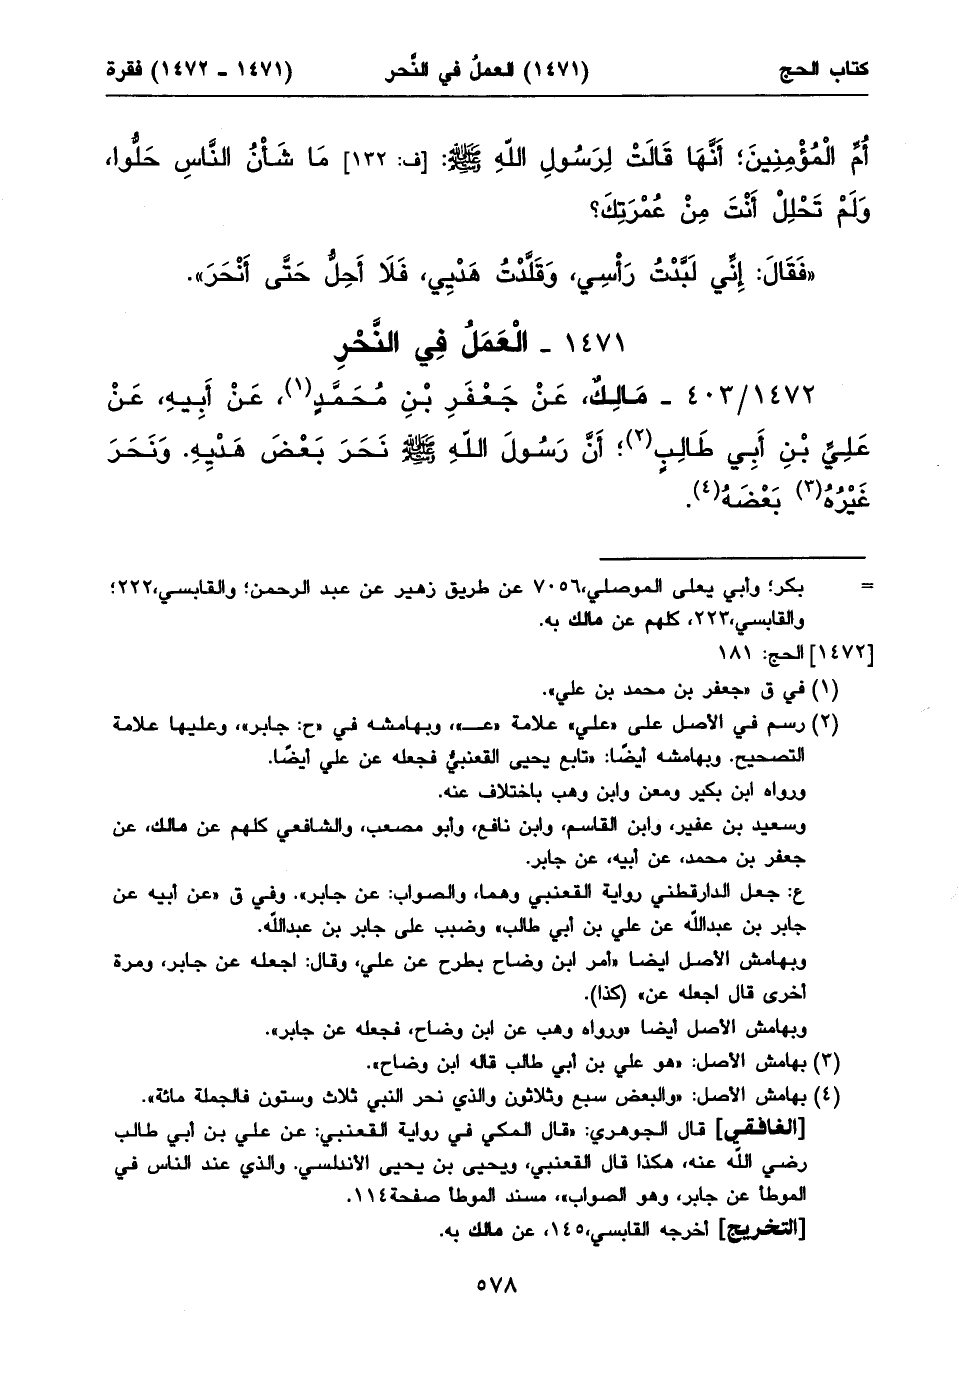 كتاب الحج (١٤٧١) العملُ في النَّحر (١٤٧١ ـ ١٤٧٢) فقرة
أُمِّ الْمُؤْمِنِينَ؛ أَنَّهَا قَالَتْ لِرَسُولِ اللّهِ ﷺ: [ف: ١٣٢] مَا شَأْنُ النَّاسِ حَلُّوا،
وَلَمْ تَحْلِلْ أَنْتَ مِنْ عُمْرَتِكَ؟
«فَقَالَ: إِنِّي لَبَّدْتُ رَأْسِي، وَقَلَّدْتُ هَدْيِي، فَلَا أَحِلُّ حَتَّى أَنْحَرَ».
١٤٧١ ـ الْعَمَلُ فِي النَّحْرِ
٤٠٣/١٤٧٢ ـ مَالِكٌ، عَنْ جَعْفَرِ بْنِ مُحَمَّدٍ(١)، عَنْ أَبِيهِ، عَنْ
عَلِيِّ بْنِ أَبِي طَالِبٍ(٢)؛ أَنَّ رَسُولَ اللّهِ ﷺ نَحَرَ بَعْضَ هَدْيِهِ. وَنَحَرَ
غَيْرُهُ(٣) بَعْضَهُ(٤).
= بكر؛ وأبي يعلى الموصلي،٧٠٥٦ عن طريق زهير عن عبد الرحمن؛ والقابسي،٢٢٢؛
والقابسي،٢٢٣، كلهم عن مالك به.
[١٤٧٢] الحج: ١٨١
(١) في ق «جعفر بن محمد بن علي».
(٢) رسم في الأصل على «علي» علامة «عـ»، وبهامشه في «ح: جابر»، وعليها علامة
التصحيح. وبهامشه أيضًا: «تابع يحيى القعنبيُّ فجعله عن علي أيضًا.
ورواه ابن بكير ومعن وابن وهب باختلاف عنه.
وسعيد بن عفير، وابن القاسم، وابن نافع، وأبو مصعب، والشافعي كلهم عن مالك، عن
جعفر بن محمد، عن أبيه، عن جابر.
ع: جعل الدارقطني رواية القعنبي وهما، والصواب: عن جابر». وفي ق «عن أبيه عن
جابر بن عبدالله عن علي بن أبي طالب» وضبب على جابر بن عبدالله.
وبهامش الأصل ايضا «أمر ابن وضاح بطرح عن علي، وقال: اجعله عن جابر، ومرة
أخرى قال اجعله عن» (كذا).
وبهامش الأصل أيضا «ورواه وهب عن ابن وضاح، فجعله عن جابر».
(٣) بهامش الأصل: «هو علي بن أبي طالب قاله ابن وضاح».
(٤) بهامش الأصل: «والبعض سبع وثلاثون والذي نحر النبي ثلاث وستون فالجملة مائة».
[الغافقي] قال الجوهري: «قال المكي في رواية القعنبي: عن علي بن أبي طالب
رضي الله عنه، هكذا قال القعنبي، ويحيى بن يحيى الأندلسي. والذي عند الناس في
الموطأ عن جابر، وهو الصواب»، مسند الموطأ صفحة١١٤.
[التخريج] أخرجه القابسي،١٤٥، عن مالك به.
٥٧٨